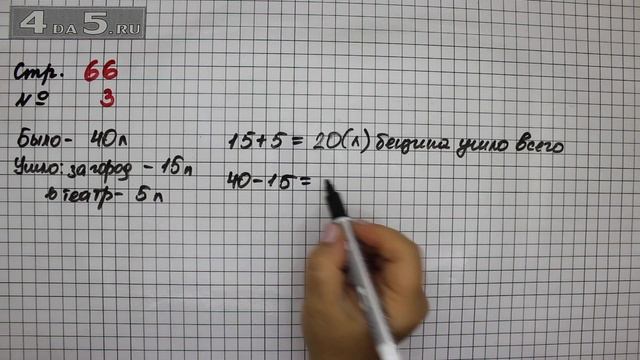 4 DA 5.RU
Стр. 66
№ 3
Было - 40л
Ушло: за город - 15л
в театр - 5л
15+5 = 20(л) бензина ушло всего
40-15=